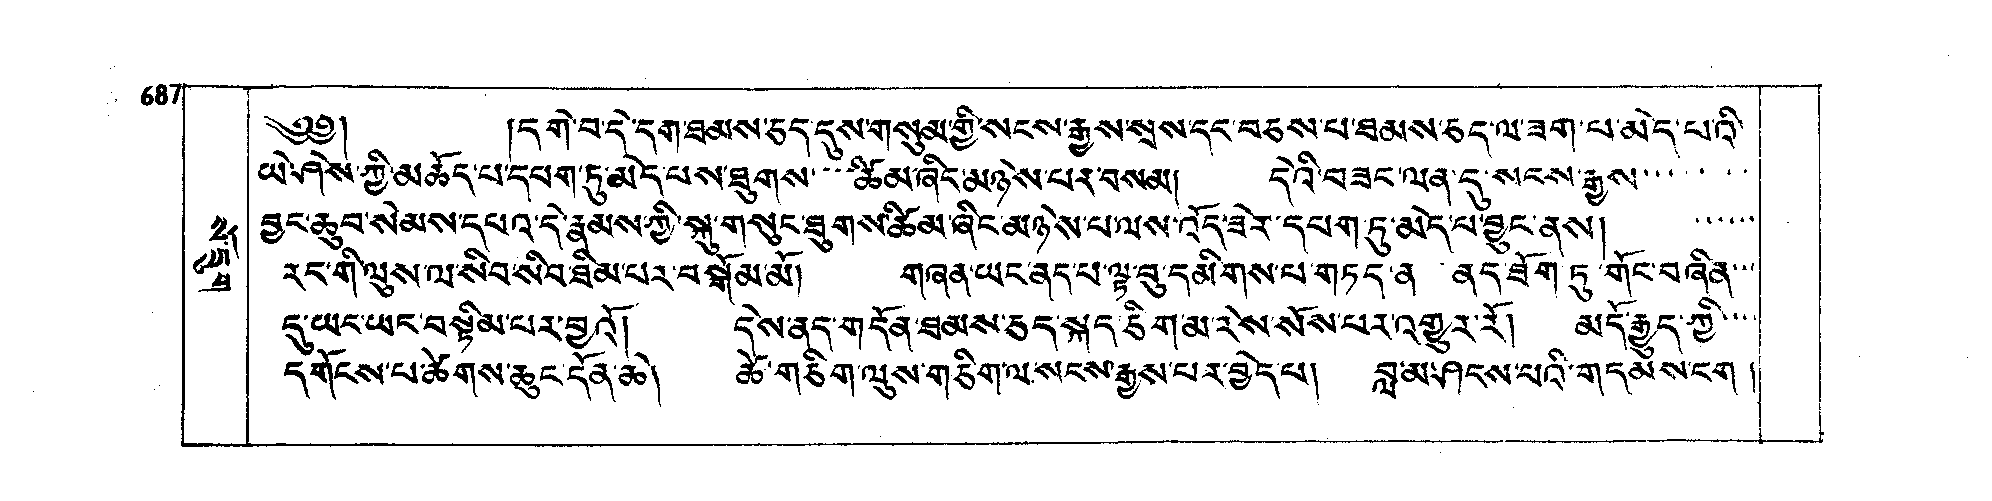 687
༄༅། །དགེ་བ་དེ་དག་ཐམས་ཅད་དུས་གསུམ་གྱི་སངས་རྒྱས་སྲས་དང་བཅས་པ་ཐམས་ཅད་ལ་ཟག་པ་མེད་པའི་
ཡེ་ཤེས་ཀྱི་མཆོད་པ་དཔག་ཏུ་མེད་པས་ཐུགས་་་་ཚིམ་ཞིང་མཉེས་པར་བསམ། དེའི་བཟང་ལན་དུ་སངས་རྒྱས་་་་་་་་
བྱང་ཆུབ་སེམས་དཔའ་དེ་རྣམས་ཀྱི་སྐུ་གསུང་ཐུགས་ཚིམ་ཞིང་མཉེས་པ་ལས་འོད་ཟེར་དཔག་ཏུ་མེད་པ་བྱུང་ནས། ་་་་་་
རང་གི་ལུས་ལ་སིབ་སིབ་ཐིམ་པར་བསྒོམ་མོ། གཞན་ཡང་ནད་པ་ལྟ་བུ་དམིགས་པ་གཏད་ན ནད་ཐོག་ཏུ་གོང་བཞིན་་་
དུ་ཡང་ཡང་བསྟིམ་པར་བྱའོ། དེས་ནད་གདོན་ཐམས་ཅད་སྐད་ཅིག་མ་རེས་སོས་པར་འགྱུར་རོ། མདོ་རྒྱུད་ཀྱི་་་་
དགོངས་པ་ཚེགས་ཆུང་དོན་ཆེ། ཚེ་གཅིག་ལུས་གཅིག་ལ་སངས་རྒྱས་པར་བྱེད་པ། བླ་མ་ཤངས་པའི་གདམས་ངག །